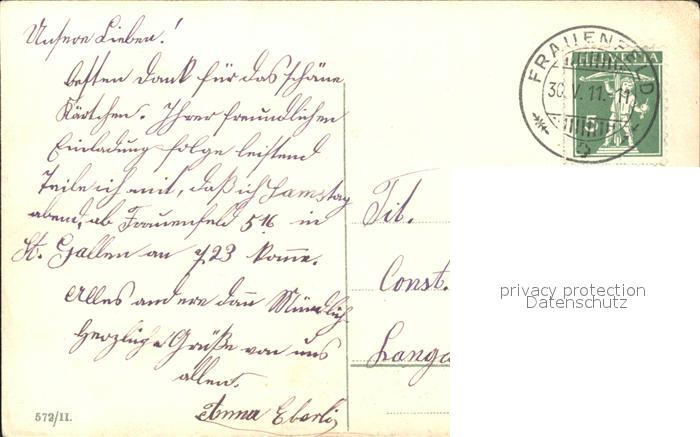 Unsere Lieben!
besten Dank für das schöne
Kärtchen. Ihrer freundlichen
Einladung folge leistend
Teile ich mit, daß ich Samstag
abend, ab Frauenfeld 5 16 in
St. Gallen an 7,23 komme.
Alles andere dann Mündlich
Herzliche Grüße von uns
allen.
Anna Eberli
573/II.
FRAUENFELD
30. V. 11. 11
HELVETIA
5
Tit.
Const.
privacy protection
Datenschutz